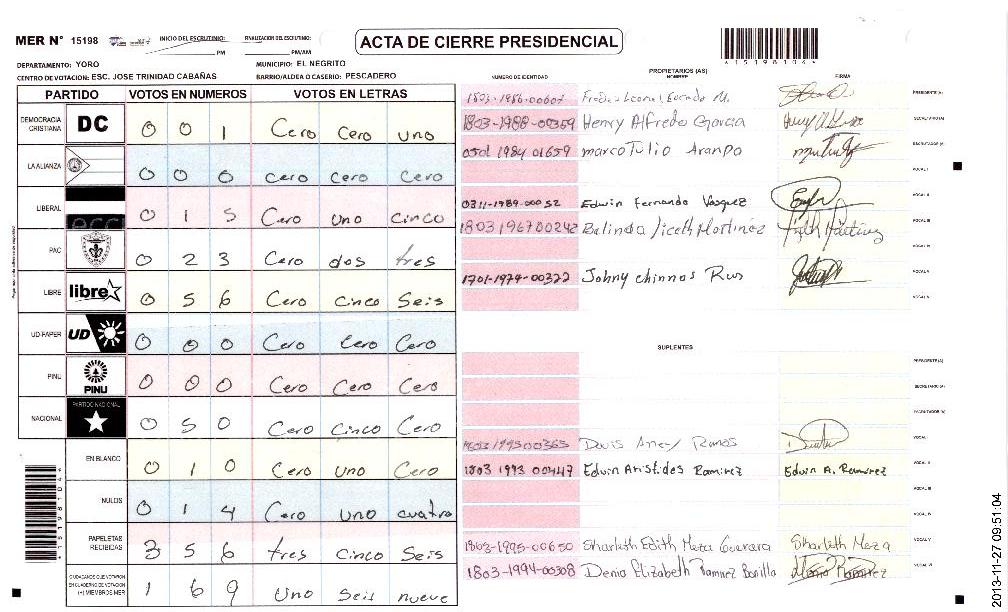 MER N° 15198 INICIO DEL ESCRUTINIO: FINALIZACION DEL ESCRUTINIO: ACTA DE CIERRE PRESIDENCIAL
PM PM/AM
*15198104*
DEPARTAMENTO: YORO MUNICIPIO: EL NEGRITO
CENTRO DE VOTACION: ESC. JOSE TRINIDAD CABAÑAS BARRIO/ALDEA O CASERIO: PESCADERO
PARTIDO VOTOS EN NUMEROS VOTOS EN LETRAS
DEMOCRACIA CRISTIANA DC 0 0 1 Cero Cero uno
LA ALIANZA 0 0 0 Cero Cero Cero
LIBERAL 0 1 5 Cero uno cinco
PAC 0 2 3 Cero dos tres
LIBRE libre 0 5 6 Cero Cinco Seis
UD-FAPER UD 0 0 0 Cero Cero Cero
PINU PINU 0 0 0 Cero Cero Cero
NACIONAL PARTIDO NACIONAL 0 5 0 Cero Cinco Cero
EN BLANCO 0 1 0 Cero uno Cero
NULOS 0 1 4 Cero uno cuatro
PAPELETAS RECIBIDAS 3 5 6 tres cinco Seis
CIUDADANOS QUE VOTARON EN CUADERNO DE VOTACION (+) MIEMBROS MER 1 6 9 Uno Seis nueve
*15198104*
PROPIETARIOS (AS)
NUMERO DE IDENTIDAD NOMBRE FIRMA
1803-1986-00607 PRESIDENTE(A)
1803-1988-00359 Henry Alfredo Garcia SECRETARIO(A)
0501 1984 01659 marco Tulio Aranpo ESCRUTADOR (A)
VOCAL I
0311-1989-00052 Edwin Fernando Vasquez VOCAL II
1803196700242 Belinda Liceth Martinez VOCAL III
VOCAL IV
1701-1974-00322 Johny chinnos Rus VOCAL V
VOCAL VI
SUPLENTES
PRESIDENTE(A)
SECRETARIO(A)
ESCRUTADOR (A)
1803199500365 Davis Ramos VOCAL I
1803 1993 00447 Edwin Aristides Ramirez Edwin A. Ramirez VOCAL II
VOCAL III
VOCAL IV
1803-1995-00650 Sharleth Edith Meza Guevara Sharleth Meza VOCAL V
1803-1994-00308 Denia Elizabeth Ramirez Bonilla Ramirez VOCAL VI
2013-11-27 09:51:04